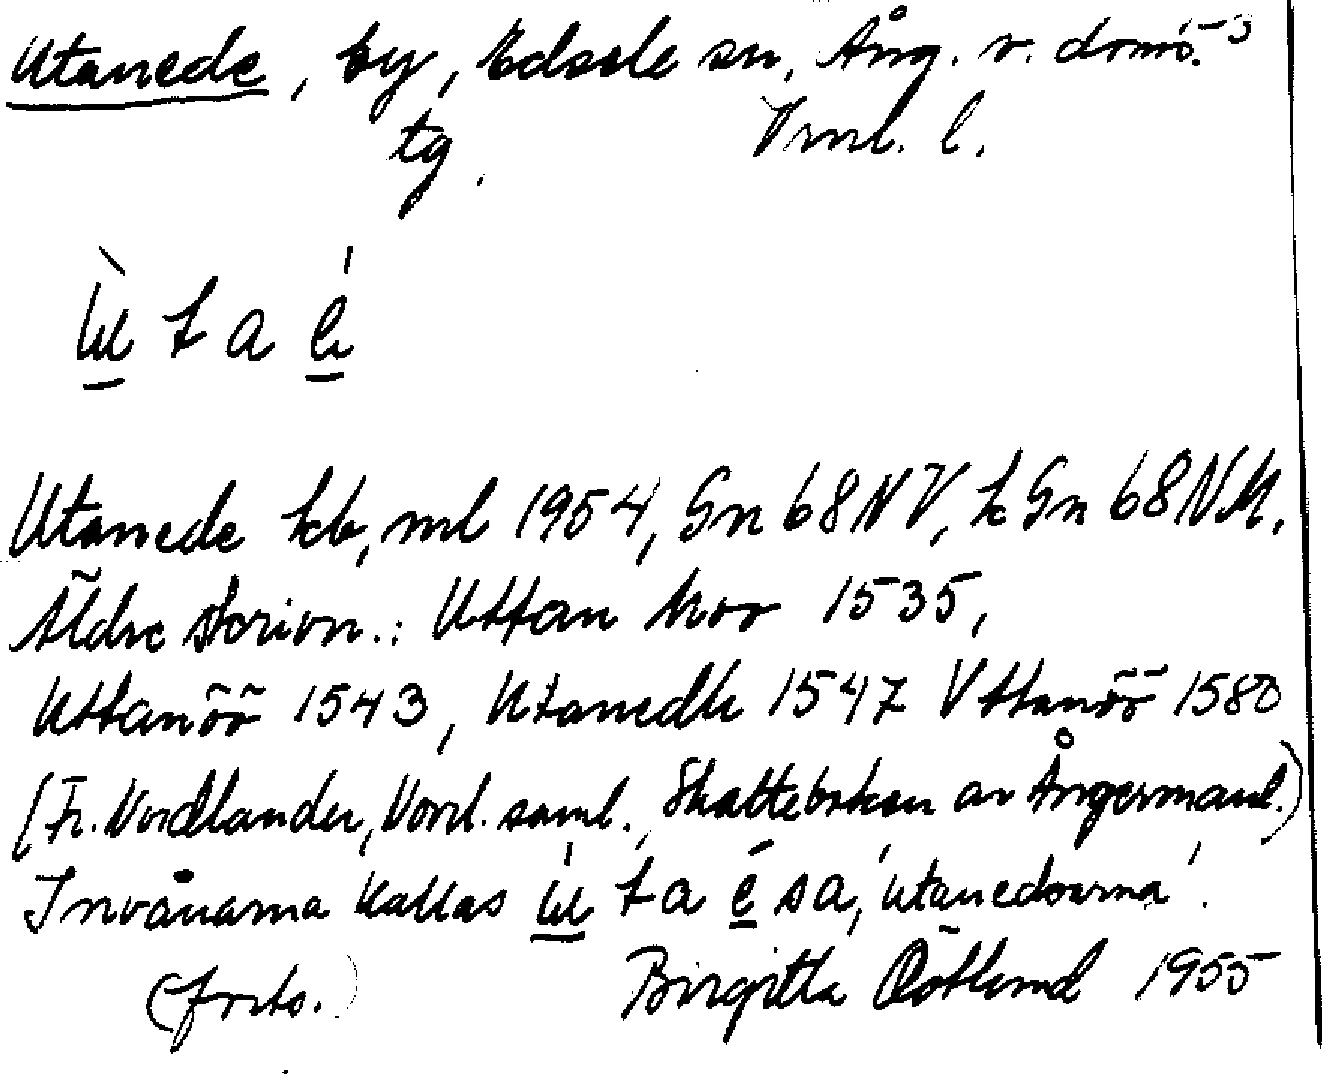 Utanede, by, Edsele sn, Ång. v. doms. 3
tg. Vrnl. l.
ù t a é
Utanede kb, ml 1954, Gn 68 NV, k Gn 68 NV.
Äldre skrivn.: Uttan noor 1535,
Uttanöö 1543, Utanedh 1547 Vttanöö 1580
(Fr. Nordlander, Norrl. saml., Skatteboken av Ångermanl.)
Invånarna kallas ù t a é sa, 'utanedsarna'.
(forts.) Birgitta Östlund 1955